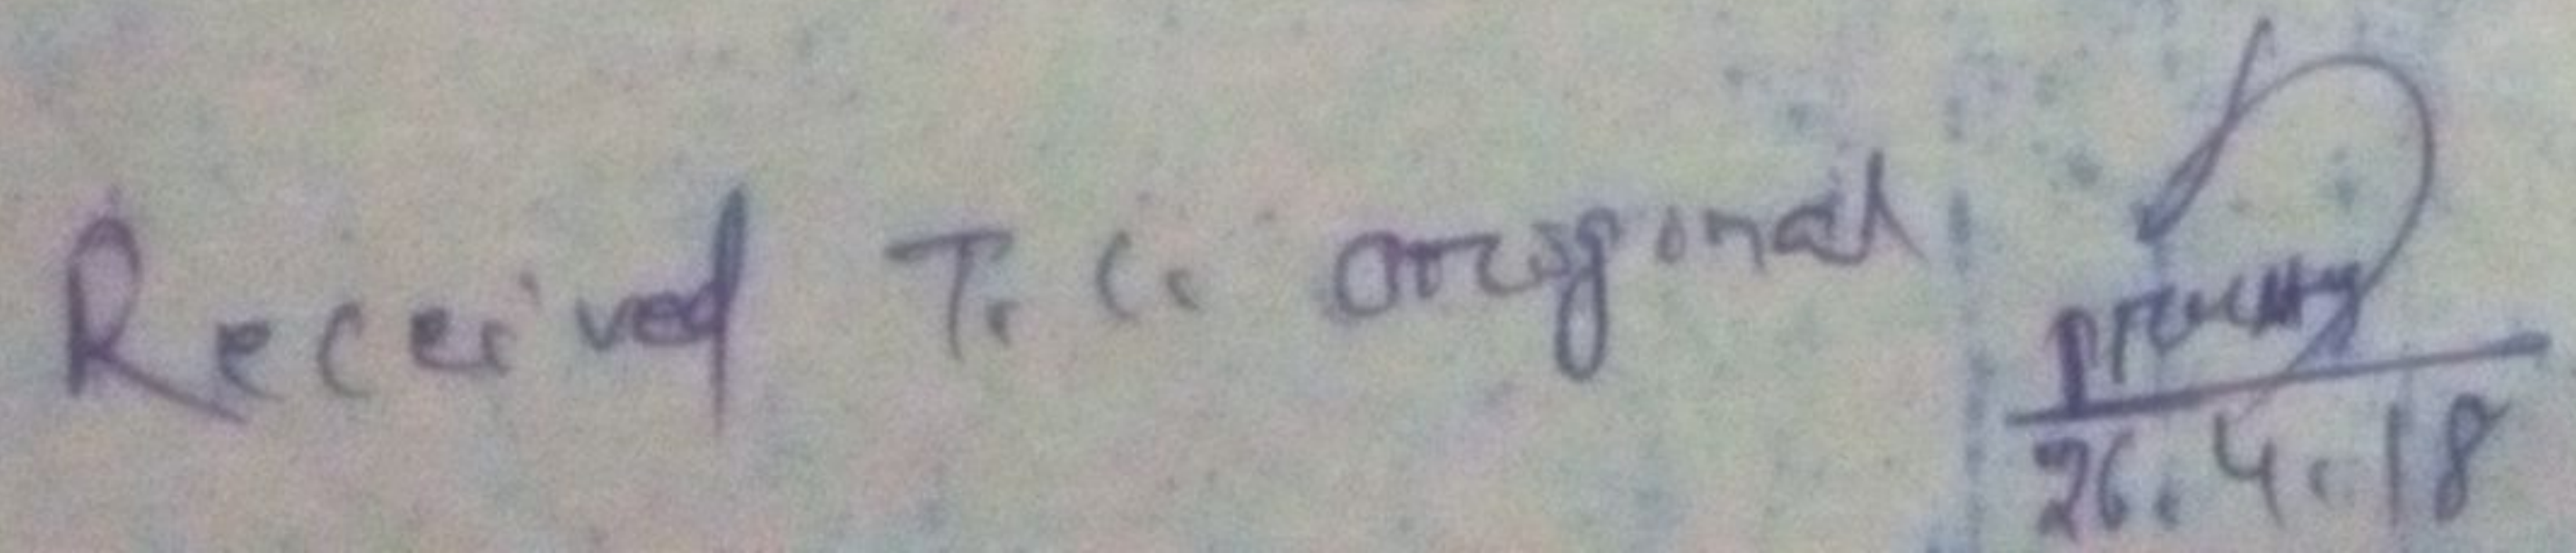 Received T. C. original
26.4.18